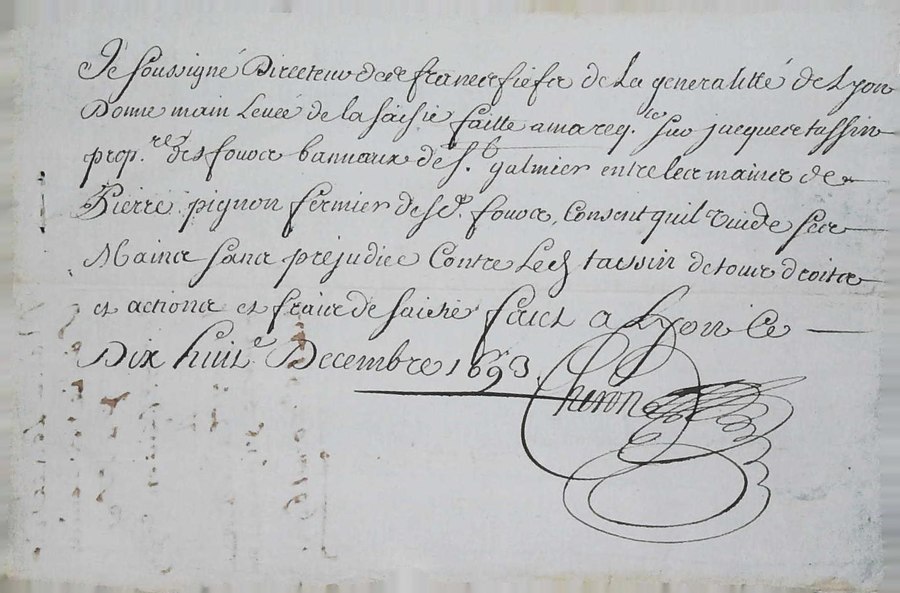 Je soussigné Directeur des francs fiefs de La generalitté de Lyon
Donne main Levée de la saisie faitte a ma req.te sur jacques tassin
prop.re des fours bannaux de S.t galmier entre les mains de
Pierre pignon fermier desd. fours, Consent quil vuide ses
Mains sans prejudice Contre Led tassin de tous droits
et actions et frais de saisie faict a Lyon Ce
Dix huit.e Decembre 1693.
Chiron